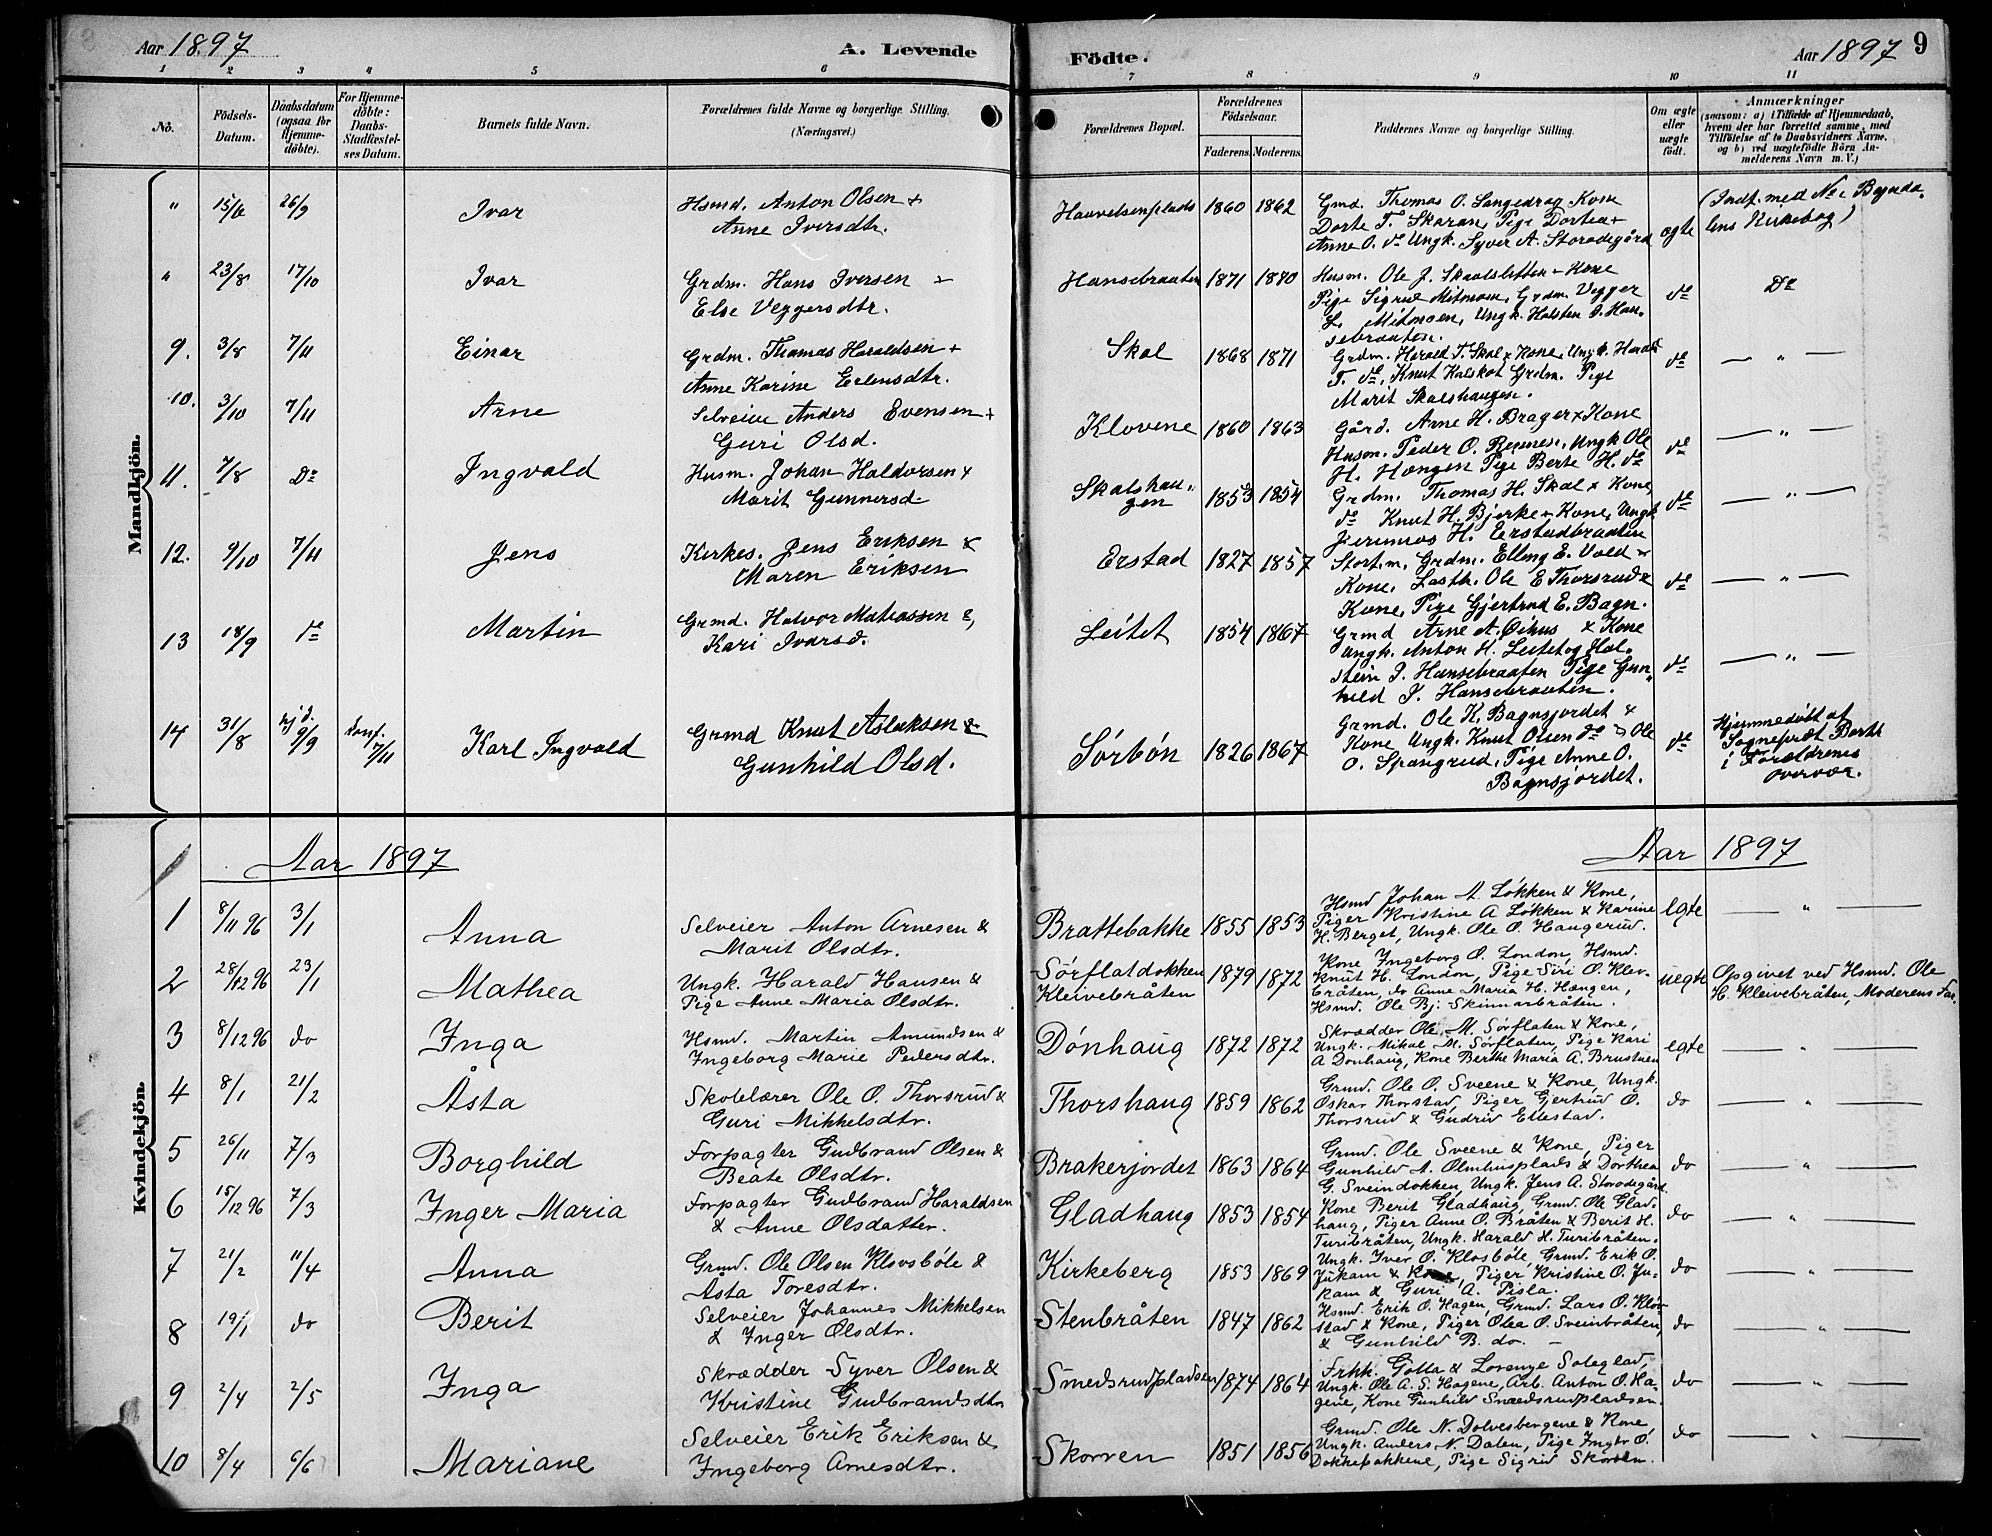 Aar 1897
A. Levende
Födte.
Aar 1897
9
1 2 3 4 5 6 7 8 9 10 11
No.
Födsels-
Datum.
Daabsdatum
(ogsaa for
Hjemme-
döbte).
For Hjemme-
döbte:
Daabs-
Stadfæstel-
ses Datum.
Barnets fulde Navn.
Forældrenes fulde Navne og borgerlige Stilling.
(Næringsvei.)
Forældrenes Bopæl.
Forældrenes
Födselsaar.
Faderens. Moderens.
Faddernes Navne og borgerlige Stilling.
Om ægte
eller
uægte
født.
Anmærkninger
(saasom: a) i Tilfælde af Hjemmedaab,
hvem der har forrettet samme, med
Tilföielse af to Daabsvidners Navne,
og b) ved uægtefödte Börn An-
melderens Navn m. V.)
Mandkjön.
" 15/6 26/9 Ivar
Hsmd. Anton Olsen +
Anne Iversdtr.
Haavelsenplads 1860 1862
Gmd. Thomas O. Sangedrag Kone
Dorte T. Skaran, Pige Dortea +
Anne O. do Ungk. Syver A. Storødegård
ægte
(Indf. med No i Bagnda-
lens Kirkebog)
" 23/8 17/10 Ivar
Grdm. Hans Iversen +
Else Veggersdtr.
Hansebraaten 1871 1870
Husm. Ole J. Skaalsletten + Kone
Pige Sigrud Mitmoen, Grdm. Vegger
L. Mitmoen, Ungk. Halsten I. Han-
sebraaten.
do
Do
9. 3/8 7/11 Einar
Grdm. Thomas Haraldsen +
Anne Karine Erlensdtr.
Skal 1868 1871
Grdm. Harald T. Skal + Kone, Ungk. Harald
T. do, Knut Kalskot Grdm. Pige
Marit Skalshaugen.
do
— " —
10. 3/10 7/11 Arne
Selveier Anders Evensen +
Guri Olsd.
Klovene 1860 1863
Gård. Arne H. Brager + Kone
Husm. Peder O. Ungk Ole
H. Hængen Pige Berte H. do
do
— " —
11. 7/8 Do Ingvald
Husm. Johan Haldorsen +
Marit Gunnersd
Skalshau-
gen 1853 1854
Grdm. Thomas H. Skal + Kone,
do Knut H. Bjerke + Kone, Ungk
H. Erstadbraaten
do
— " —
12. 9/10 7/11 Jens
Kirkes. Jens Eriksen &
Maren Eriksen
Erstad 1827 1857
Stort.m. Grdm. Elling E. Vold +
Kone, Lasth. Ole E Thorsrud &
Kone, Pige Gjertrud E. Bagn.
do
— " —
13 18/9 do Martin
Grmd. Halvor Matiassen &
Kari Ivarsd.
Leitet 1854 1867
Grmd Arne A. Öihus & Kone
Ungk. Anton H. Leitet og Hal-
stein I. Hansebraaten Pige Gun-
hild I. Hansebraaten.
do
— " —
14 31/8 hjd. 9/9 7/11 Karl Ingvald
Grmd Knut Aslaksen &
Gunhild Olsd.
Sørbøn 1826 1867
Grmd. Ole K. Bagnsjordet &
Kone Ungk. Knut Olsen do Ole
O. Spangrud, Pige Anne O.
Bagnsjordet.
do
Hjemmedøbt af
Sognepræst Berth
i Forældrenes
overvær.
Kvindekjön.
Aar 1897
Aar 1897
1 8/11 96 3/1 Anna
Selveier Anton Arnesen &
Marit Olsdtr.
Brattebakke 1855 1853
Hsmd Johan A. Løkken & Kone,
Piger Kristine A Løkken & Karine
H. Berget, Ungk. Ole O. Haugerud.
egte
— " —
2 28/12 96 23/1 Mathea
Ungk. Harald Hansen &
Pige Anne Maria Olsdtr.
Sørflatdokken
Kleivebråten 1879 1872
Kone Ingeborg O. London, Hsmd.
Knut H. London, Pige Siri O. Klev-
bråten, do Anne Maria H. Hængen,
Hsmd. Ole Bj. Skinnarbråten.
uegte
Opgivet ved Hsmd. Ole
H. Kleivebråten, Moderens Far.
3 8/12 96 do Inga
Hsmd. Martin Amundsen &
Ingeborg Marie Pedersdtr.
Dønhaug 1872 1872
Skrædder Ole M. Sørflaten & Kone,
Ungk. Mikal M. Sørflaten, Pige Kari
A Dønhaug, Kone Berthe Maria A. Brustuen
egte
— " —
4 8/1 21/2 Åsta
Skolelærer Ole O. Thorsrud &
Guri Mikkelsdtr.
Thorshaug 1859 1862
Grmd. Ole O. Sveene & Kone, Ungk.
Oskar Thorstad, Piger Gjertrud O.
Thorsrud & Gudrid Ellestad.
do
— " —
5 26/11 7/3 Borghild
Forpagter Gudbrand Olsen &
Beate Olsdtr.
Brakerjordet 1863 1864
Grmd. Ole Sveene & Kone, Piger
Gunhild A. Olmhusplads & Dorthea
G. Sveindokken, Ungk. Jens A. Storødegård.
do
— " —
6 15/12 96 7/3 Inger Maria
Forpagter Gudbrand Haraldsen
& Anne Olsdatter.
Gladhaug 1853 1854
Kone Berit Gladhaug, Grmd. Ole Glad-
haug, Piger Anne O. Bråten & Berit H.
Turibråten, Ungk. Harald H. Turibråten.
do
— " —
7 21/2 11/4 Anna
Grmd. Ole Olsen Klovsbøle &
Åsta Toresdtr.
Kirkeberg 1853 1869
Ungk. Iver O. Klosbøle, Grmd. Erik O.
Jukam & Kone, Piger Kristine O. Ju-
kam & Guri A. Pisla.
do
— " —
8 19/1 do Berit
Selveier Johannes Mikkelsen
& Inger Olsdtr.
Stenbråten 1847 1862
Hsmd. Erik O. Hagen, Grmd. Lars O. Kløv-
stad & Kone, Piger Olea O. Sveinbråten,
& Gunhild B. do. —
do
— " —
9 2/4 2/5 Inga
Skrædder Syver Olsen &
Kristine Gudbrandsdtr
Smedsrudpladsen 1874 1864
Frkk. Gotta & Lorenze Soleglad,
Ungk. Ole A. S. Hagene, Arb. Anton O. Ha-
gene, Kone Gunhild Smedsrudpladsen.
do
— " —
10 8/4 6/6 Mariane
Selveier Erik Eriksen &
Ingeborg Arnesdtr.
Skorven 1851 1856
Grmd. Ole N. Dolvesbergene & Kone
Ungk. Anders N. Dalen, Pige Inger O.
Dokkebakkene, Pige Sigrid Skorven.
do
— " —